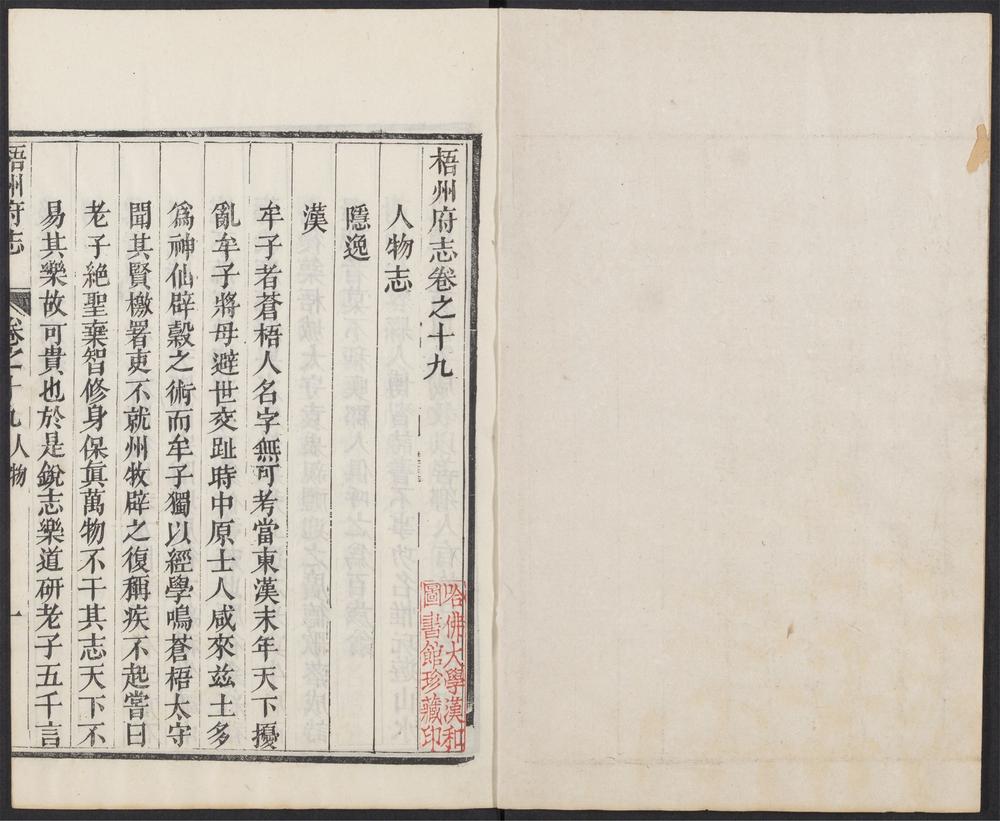 梧州府志卷之十九
人物志
隱逸
漢
牟子者蒼梧人名字無可考當東漢末年天下擾
亂牟子將母避世交趾時中原士人咸來兹土多
爲神仙辟穀之術而牟子獨以經學鳴蒼梧太守
聞其賢檄署吏不就州牧辟之復稱疾不起嘗曰
老子絶聖棄智修身保眞萬物不干其志天下不
易其樂故可貴也於是銳志樂道研老子五千言
梧州府志
卷之十九人物
一
哈佛大學漢和
圖書館珍藏印